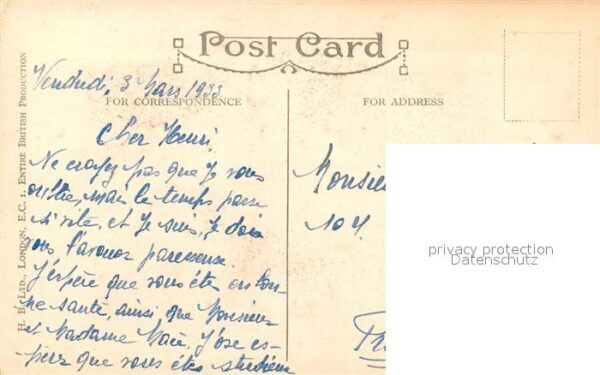 Post Card
Vendredi, 3 Mars 1933
FOR CORRESPONDENCE
FOR ADDRESS
H. B. LTD., LONDON, E.C. 1. ENTIRE BRITISH PRODUCTION
Cher Henri,
Ne croyez pas que je vous
oublie, mais le temps passe
si vite, et je suis, je dois
vous l'avouer paresseuse.
J'espère que vous êtes en bon-
ne santé, ainsi que Monsieur
et Madame
J'ose es-
pérer que vous êtes studieux
Monsieu
104
privacy protection
Datenschutz